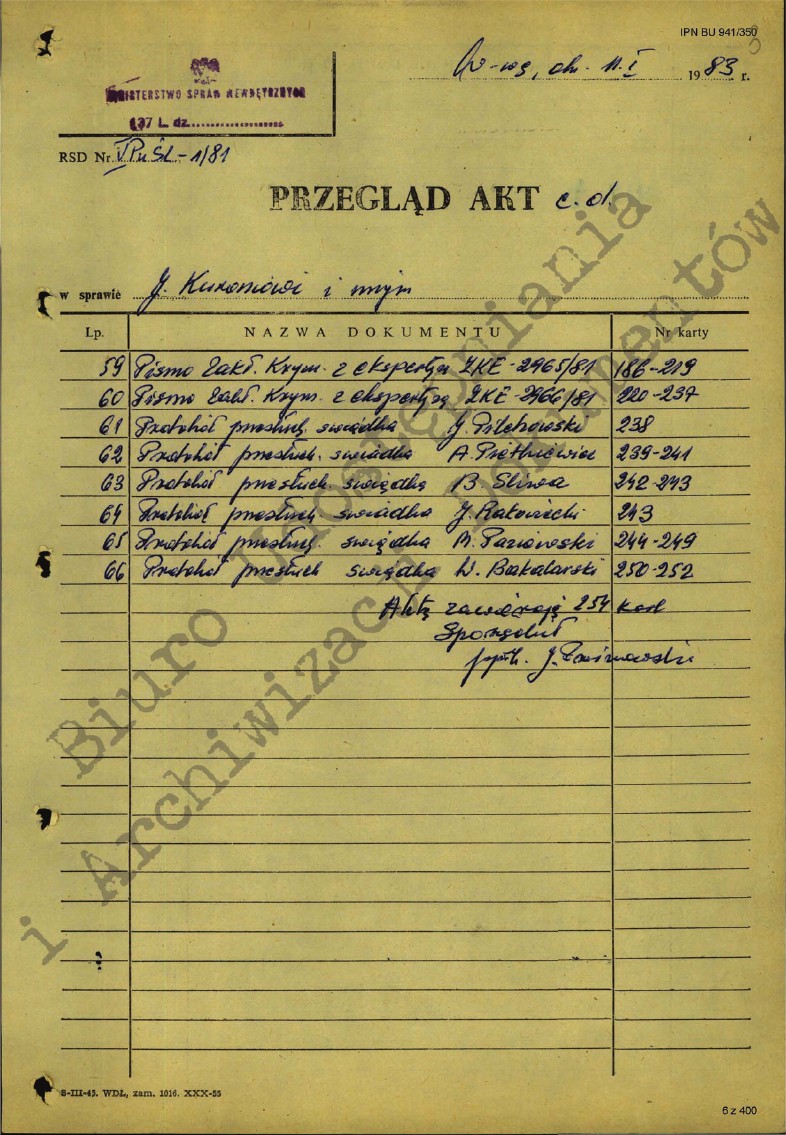 IPN BU 941/350
W-wa, dn. 11.I 1983 r.
MINISTERSTWO SPRAW WEWNĘTRZNYCH
L. dz.
RSD Nr V PŚl-1/81
PRZEGLĄD AKT c.d.
w sprawie J. Kuroniowi i innym
Lp. NAZWA DOKUMENTU Nr karty
59 Pismo Zakł. Krym. z ekspertyzą ZKE-2965/81 186-219
60 Pismo Zakł. Krym. z ekspertyzą ZKE-2966/81 220-237
61 Protokół przesłuch. świadka J. Pilchowski 238
62 Protokół przesłuch. świadka A. Pietkiewicz 239-241
63 Protokół przesłuch świadka B. Śliwa 242-243
64 Protokół przesłuch świadka J. Rakowiecki 243
65 Protokół przesłuch. świadka M. 244-249
66 Protokół przesłuch świadka W. Bakalarski 250-252
Akta zawierają 254 kart
Sporządził
ppłk. J.
Biuro Udostępniania
i Archiwizacji Dokumentów
S-III-45. WDŁ, zam. 1016. XXX-55
6 z 400